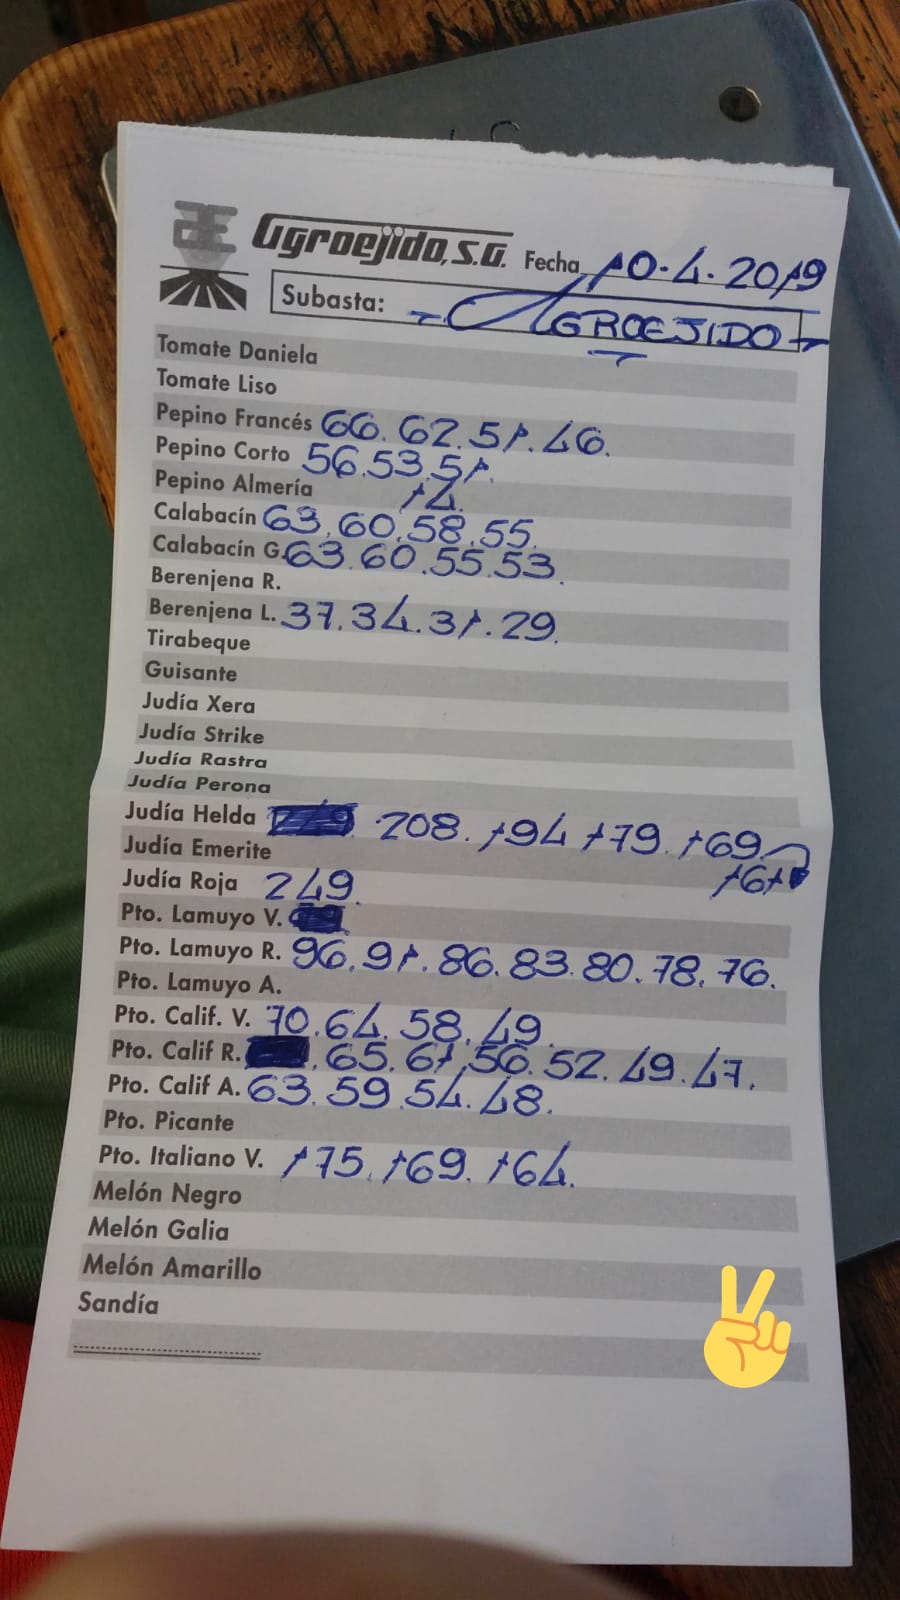 Agroejido, S.A. Fecha 10.4.2019
Subasta: AGROEJIDO
Tomate Daniela
Tomate Liso
Pepino Francés 66. 62. 51. 46.
Pepino Corto 56. 53. 51.
Pepino Almería 14.
Calabacín 63. 60. 58. 55.
Calabacín G. 63. 60. 55. 53.
Berenjena R.
Berenjena L. 37. 34. 31. 29.
Tirabeque
Guisante
Judía Xera
Judía Strike
Judía Rastra
Judía Perona
Judía Helda 208. 194 179. 169
Judía Emerite 161
Judía Roja 249.
Pto. Lamuyo V.
Pto. Lamuyo R. 96. 91. 86. 83. 80. 78. 76.
Pto. Lamuyo A.
Pto. Calif. V. 70. 64. 58. 49.
Pto. Calif R. 65. 61. 56. 52. 49. 47.
Pto. Calif A. 63. 59. 54. 48.
Pto. Picante
Pto. Italiano V. 175. 169. 164.
Melón Negro
Melón Galia
Melón Amarillo
Sandía